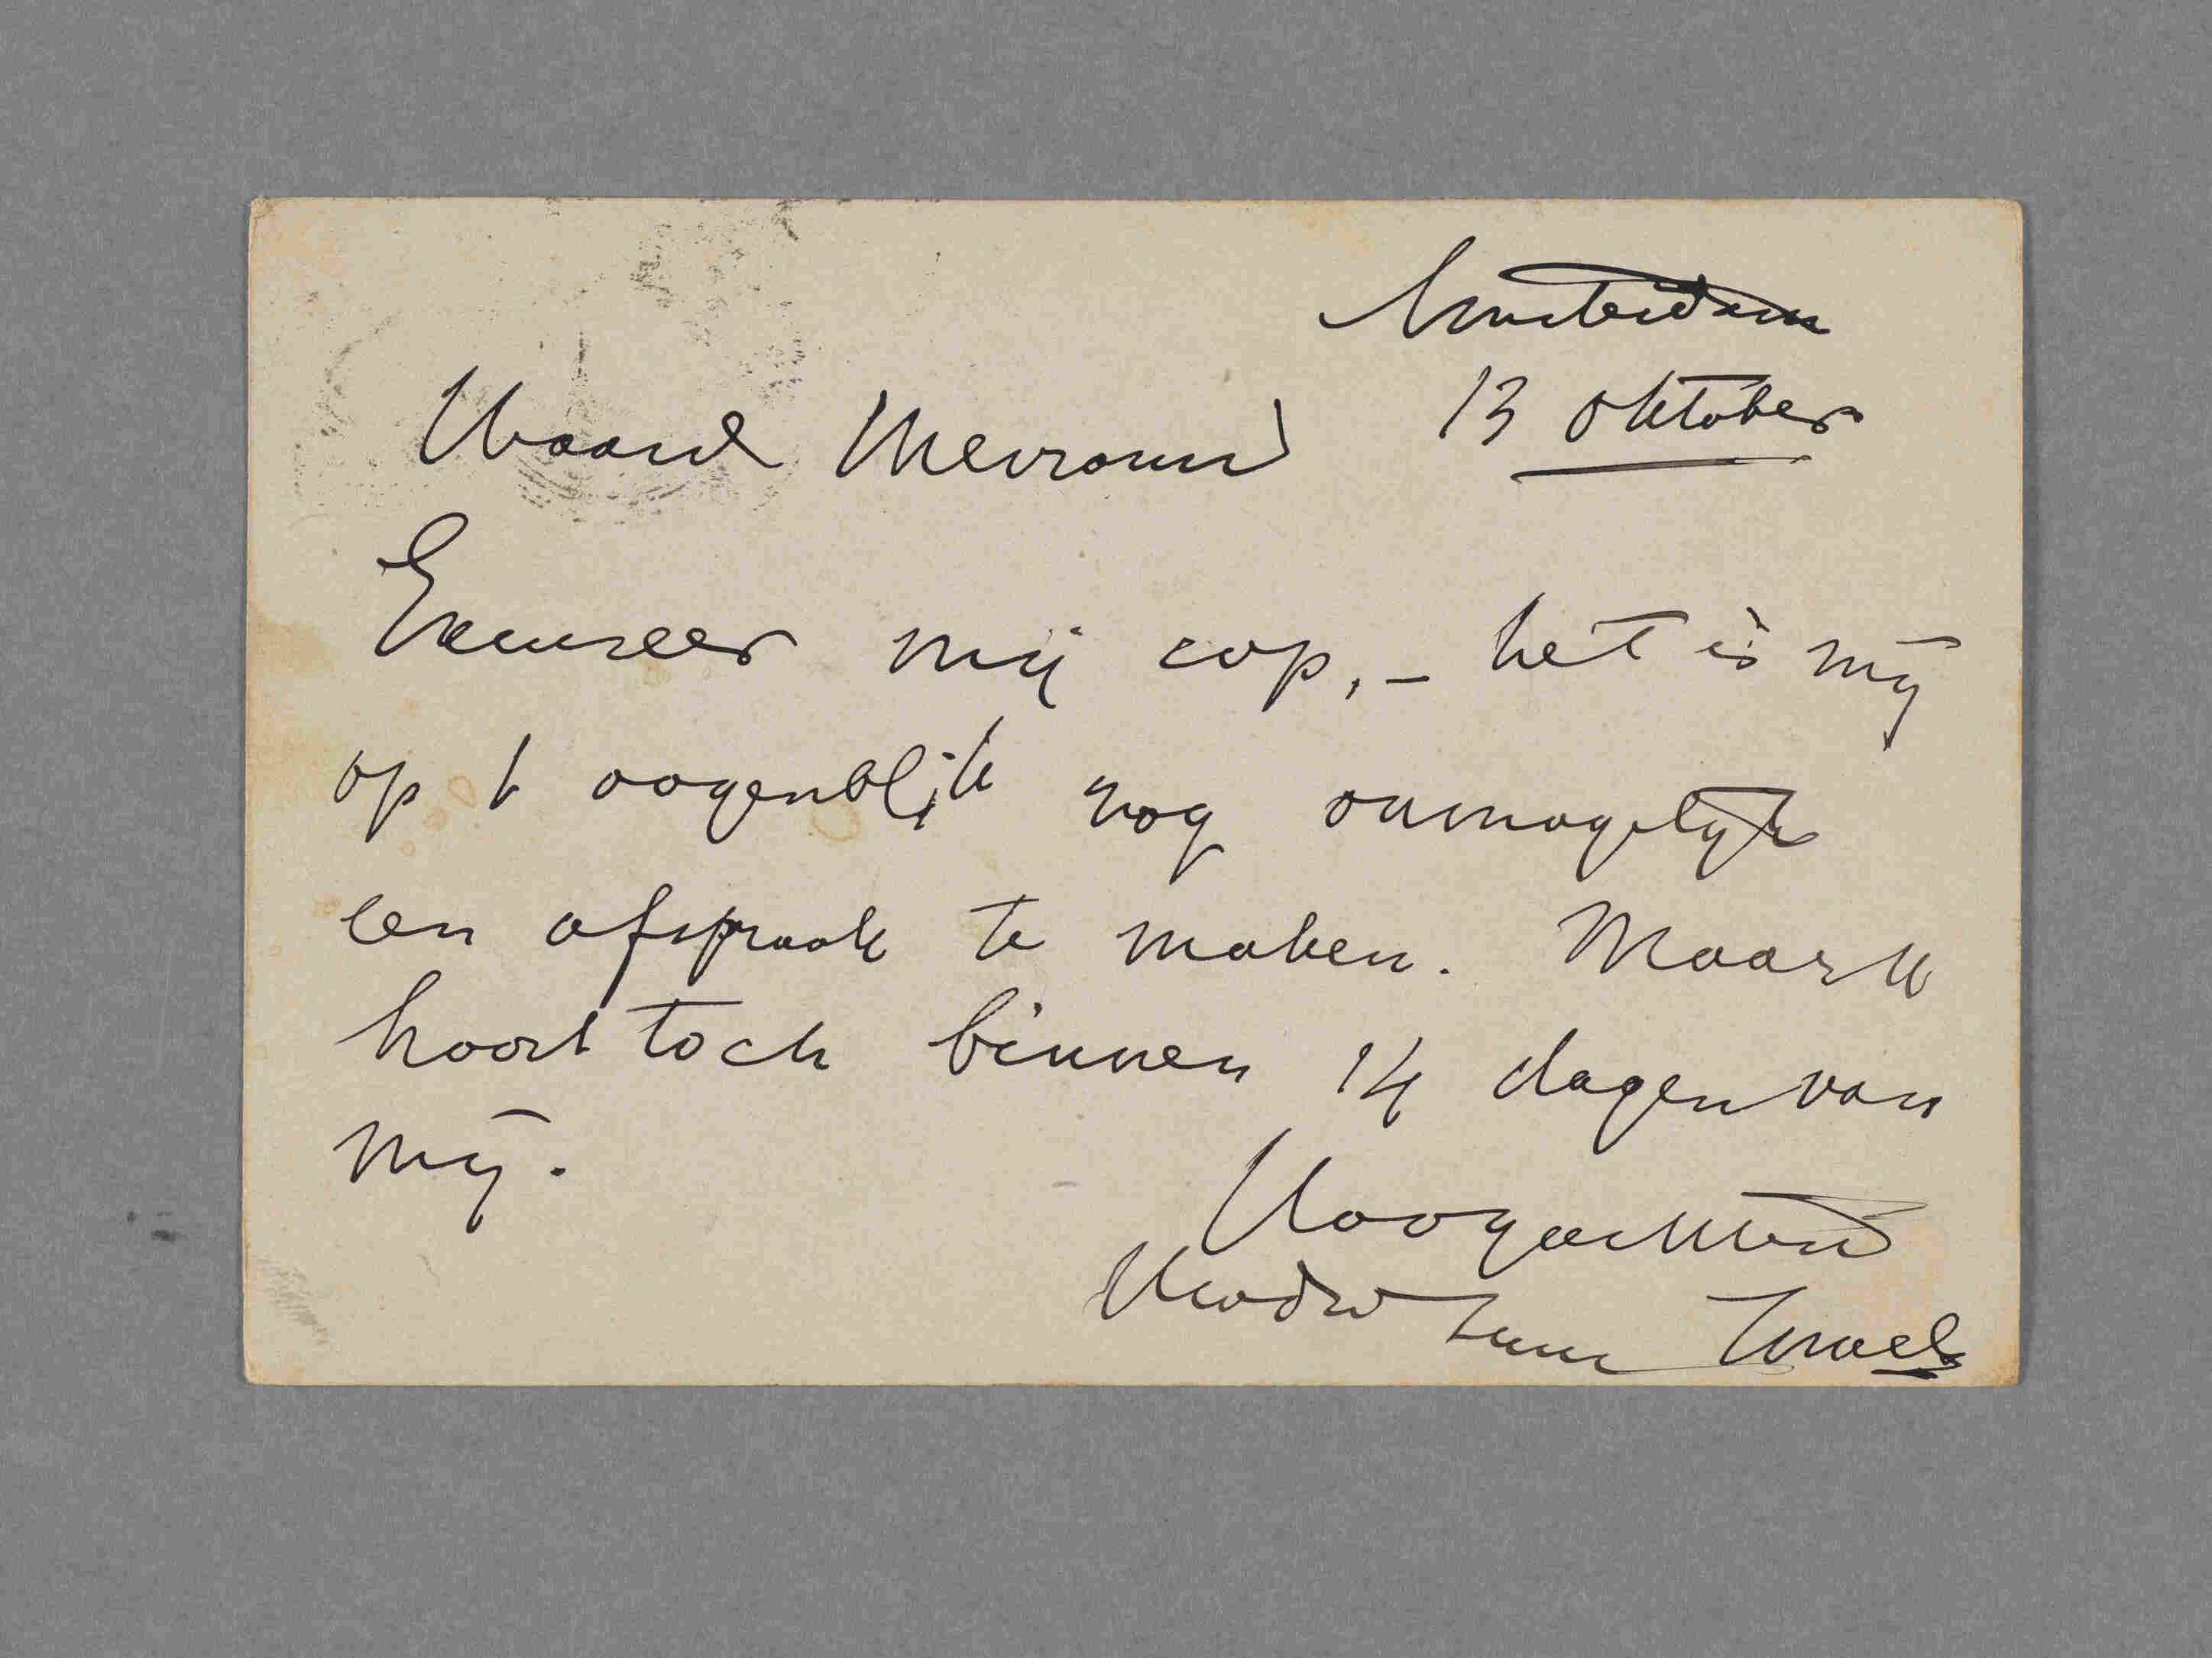 Amsterdam
13 Oktober
Waarde Mevrouw
Excuseer mij svp, - het is mij
op t oogenblik nog onmogelijk
een afspraak te maken. Maar U
hoort toch binnen 14 dagen van
mij.
Hoogachtend
Uwdw Isaac Israels